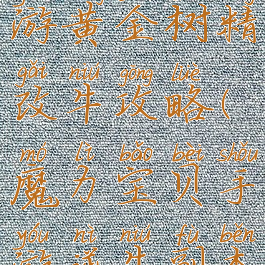 游黄金树精
gǎi niú gōng lüè
改牛攻略(
mó lì bǎo bèi shǒu
魔力宝贝手
yóu nì niú fù běn